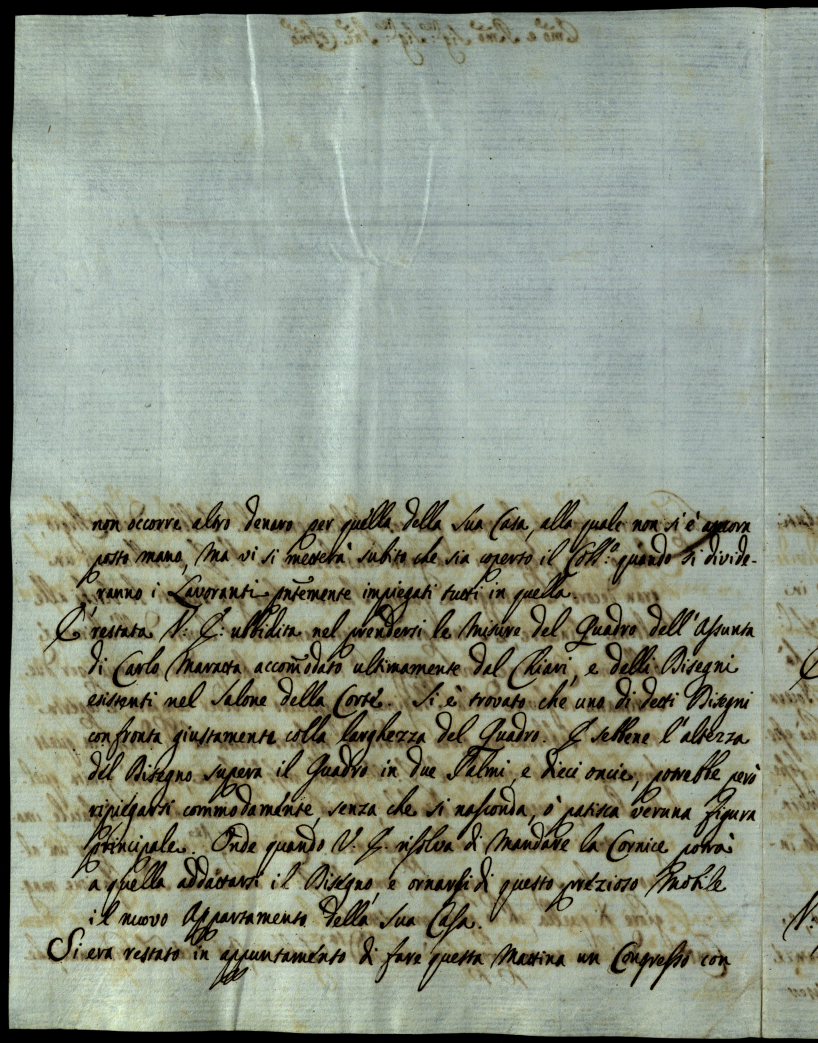 non occorre altro denaro per quella della Sua Casa, alla quale non si è ancora
posto mano, Ma vi si metterà subito che sia coperto il Coll:º quando si divide-
ranno i Lavoranti pñtemente impiegati tutti in quella.
E' restata V: E: ubbidita nel prendersi le Misure del Quadro dell'Assunta
di Carlo Maratta accom̃odato ultimamente dal Chiari, e delli Disegni
esistenti nel Salone della Corte. Si è trovato che uno di detti Disegni
confronta giustamente colla larghezza del Quadro. E sebbene l'altezza
del Disegno supera il Quadro in due Palmi, e dieci oncie, potrebbe però
ripiegarsi commodamente, senza che si nasconda, ò patisca veruna figura
principale. Onde quando V: E: risolva di Mandare la Cornice potrà
a quella addattarsi il Disegno, e ornarsi di questo prezioso Mobile
il nuovo Appartamento della Sua Casa.
Si era restato in appuntamento di fare questa Mattina un Congresso con